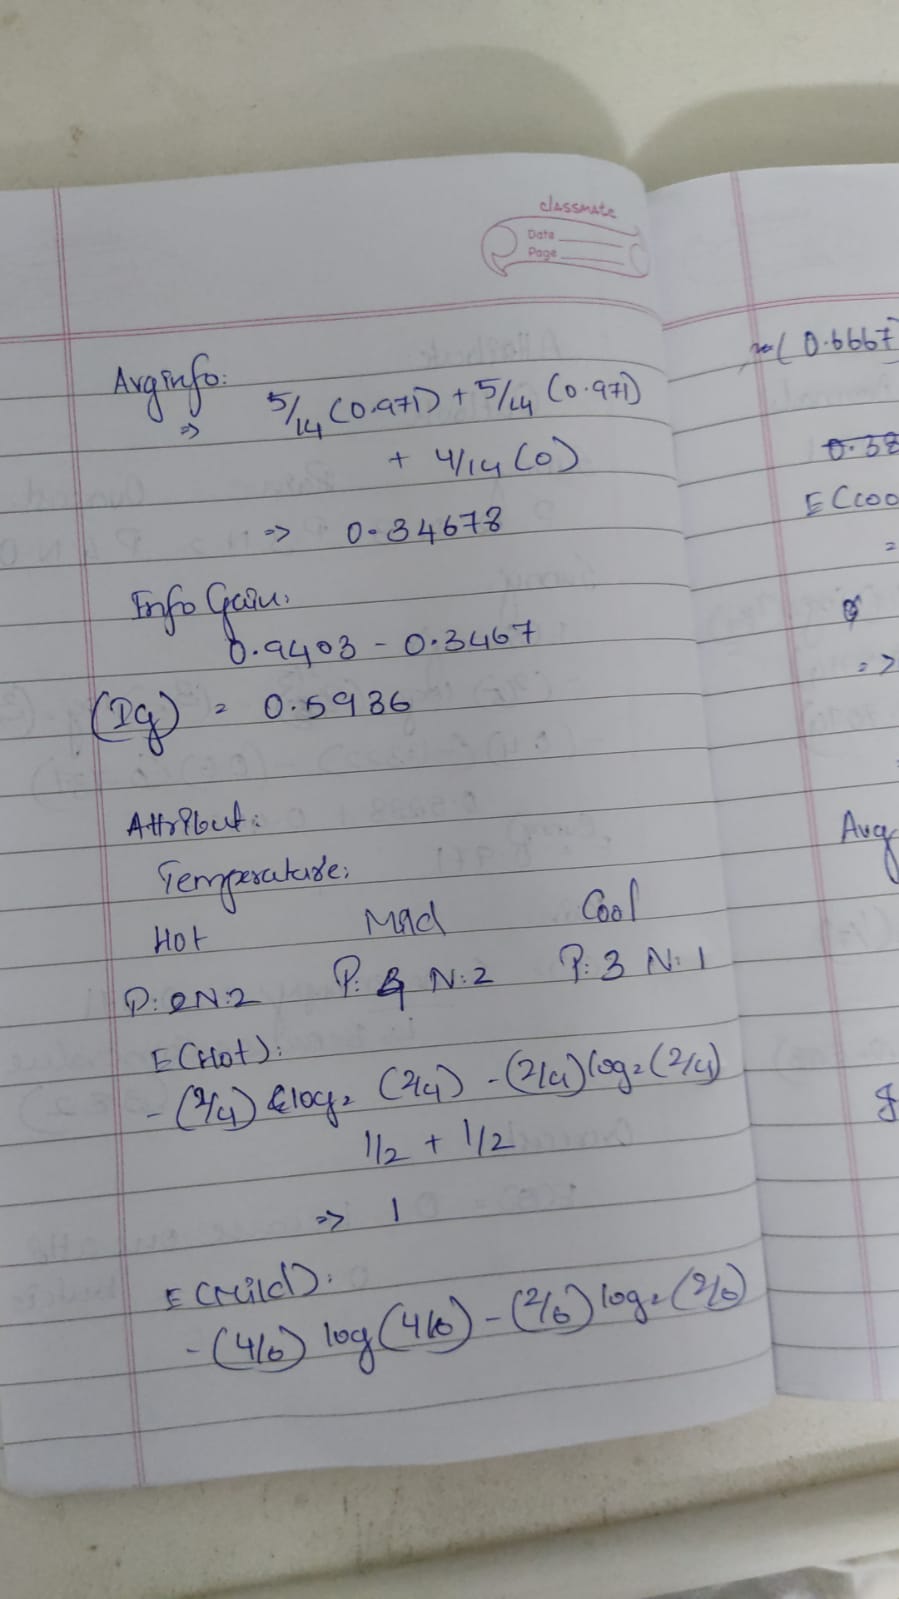 classmate
Date
Page
Avginfo:
=> 5/14 (0.971) + 5/14 (0.971)
+ 4/14 (0)
=> 0.34678
Info Gain:
0.9403 - 0.3467
(Ig) = 0.5936
Attribut:
Temperature:
Hot Mild Cool
P:2 N:2 P: 4 N:2 P: 3 N:1
E(Hot):
- (2/4) log2 (2/4) - (2/4) log2 (2/4)
1/2 + 1/2
=> 1
E(Mild):
- (4/6) log (4/6) - (2/6) log2 (2/6)
(0.6667
0.38
E(coo
=
=>
Avg